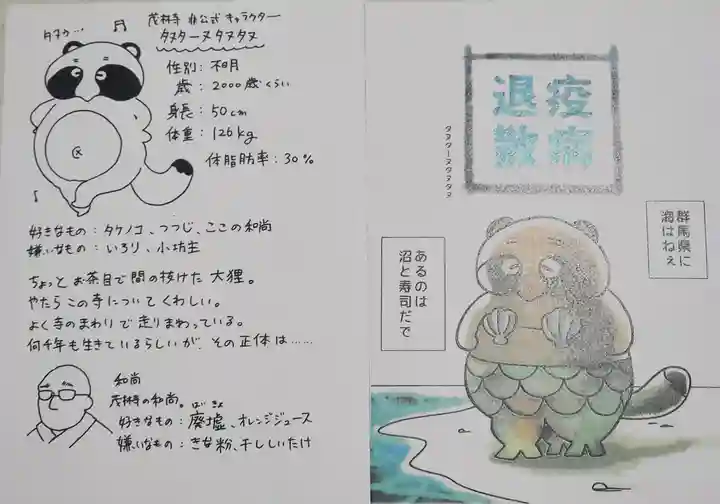 茂林寺 非公式キャラクター
タヌターヌタヌタヌ
タヌゥ…
性別：不明
歳：2000歳くらい
身長：50cm
体重：126kg
体脂肪率：30%
好きなもの：タケノコ、つつじ、ここの和尚
嫌いなもの：いろり、小坊主
ちょっとお茶目で間の抜けた大狸。
やたらこの寺についてくわしい。
よく寺のまわりで走りまわっている。
何千年も生きているらしいが、その正体は……
和尚
茂林寺の和尚。
好きなもの：廃墟、オレンジジュース
はいきょ
嫌いなもの：きな粉、干ししいたけ
疫病
退散
タヌターヌタヌタヌ
群馬県に
海はねぇ
あるのは
沼と寿司だで